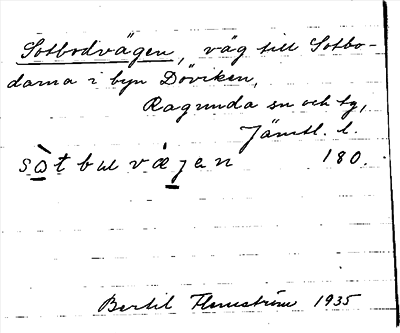 Sotbodvägen, väg till Sotbo-
darna i byn Döviken,
Ragunda sn och tg,
Jämtl. l.
180.
Bertil Flemström 1935